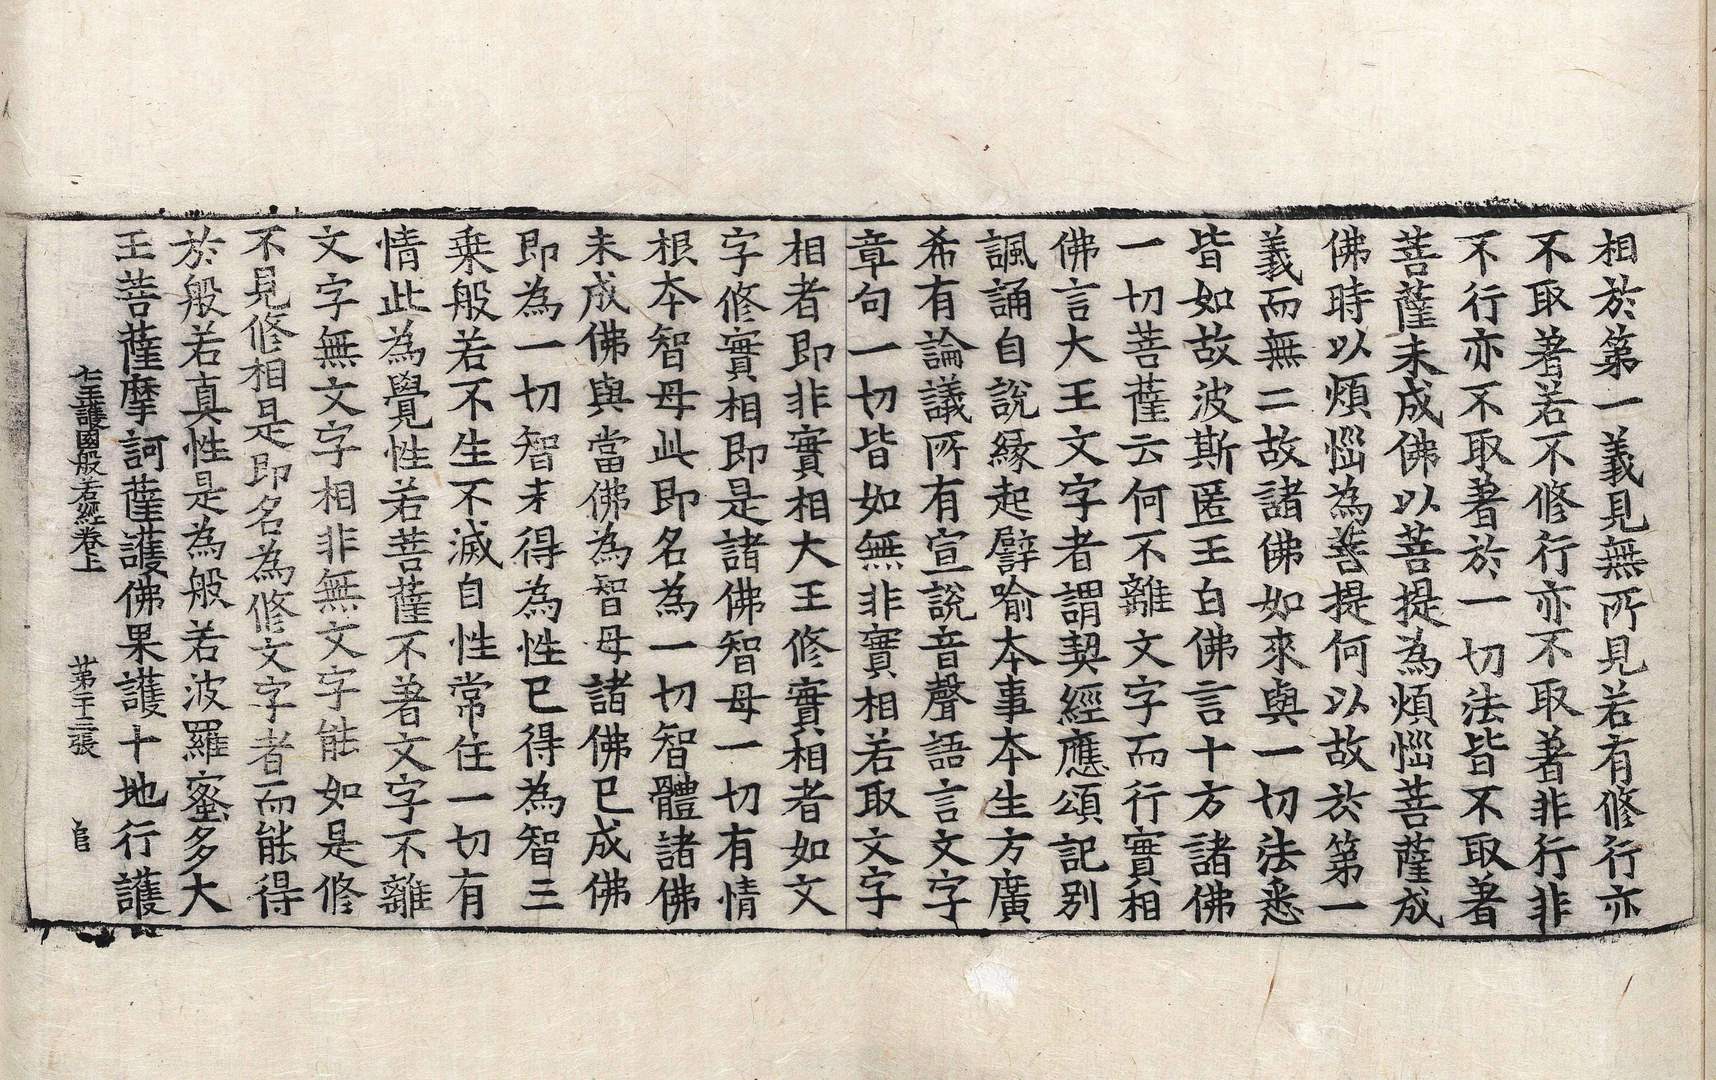 相於第一義見無所見若有修行亦
不取著若不修行亦不取著非行非
不行亦不取著於一切法皆不取著
菩薩未成佛以菩提為煩惱菩薩成
佛時以煩惱為菩提何以故於第一
義而無二故諸佛如來與一切法悉
皆如故波斯匿王白佛言十方諸佛
一切菩薩云何不離文字而行實相
佛言大王文字者謂契經應頌記別
諷誦自說緣起譬喻本事本生方廣
希有論議所有宣說音聲語言文字
章句一切皆如無非實相若取文字
相者即非實相大王修實相者如文
字修實相即是諸佛智母一切有情
根本智母此即名為一切智體諸佛
未成佛與當佛為智母諸佛已成佛
即為一切智未得為性已得為智三
乘般若不生不滅自性常住一切有
情此為覺性若菩薩不著文字不離
文字無文字相非無文字能如是修
不見修相是即名為修文字者而能得
於般若真性是為般若波羅蜜多大
王菩薩摩訶薩護佛果護十地行護
仁王護國般若經卷上 第二十三張